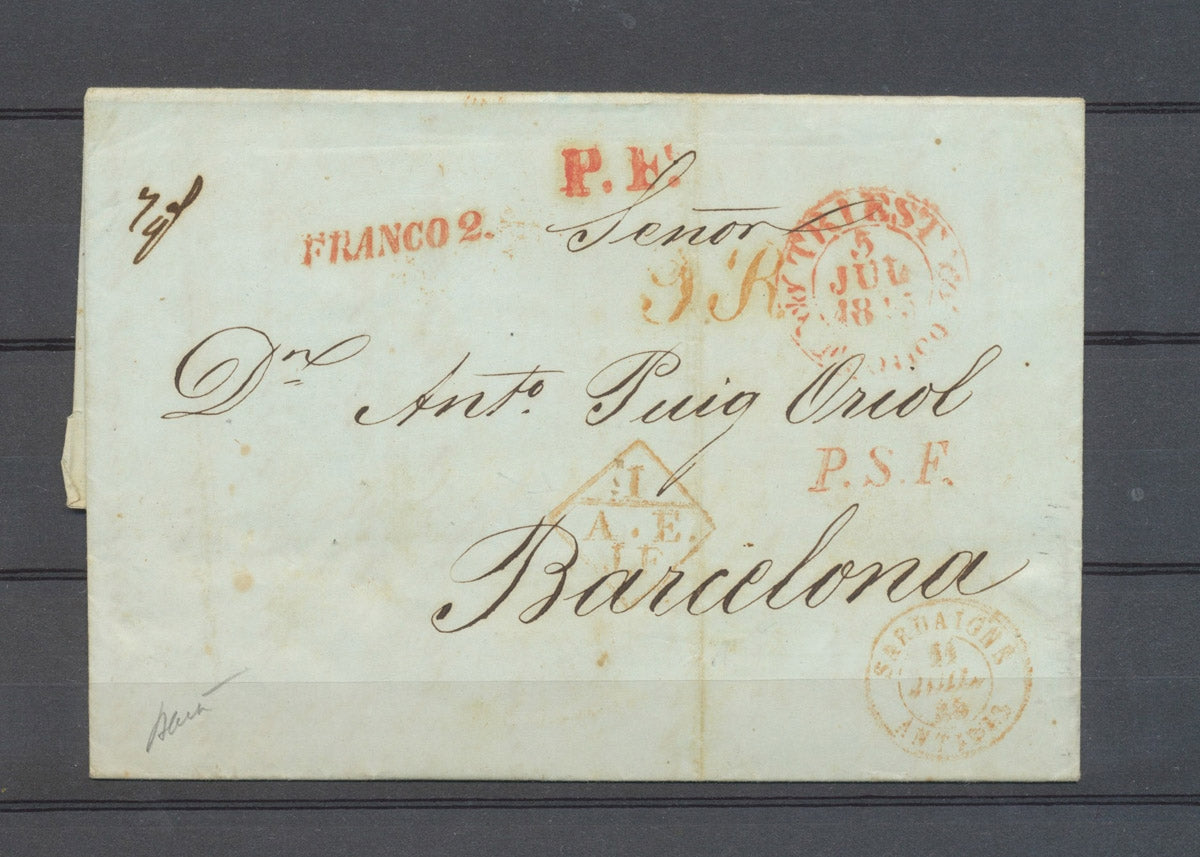 P. F.
FRANCO 2.
Señor
TRIEST
5
JUL
I. R.
Dn Anto. Puig Oriol
P. S. F.
A. E.
Barcelona
SARDAIGNE
11
JUIL
45
ANTIBES